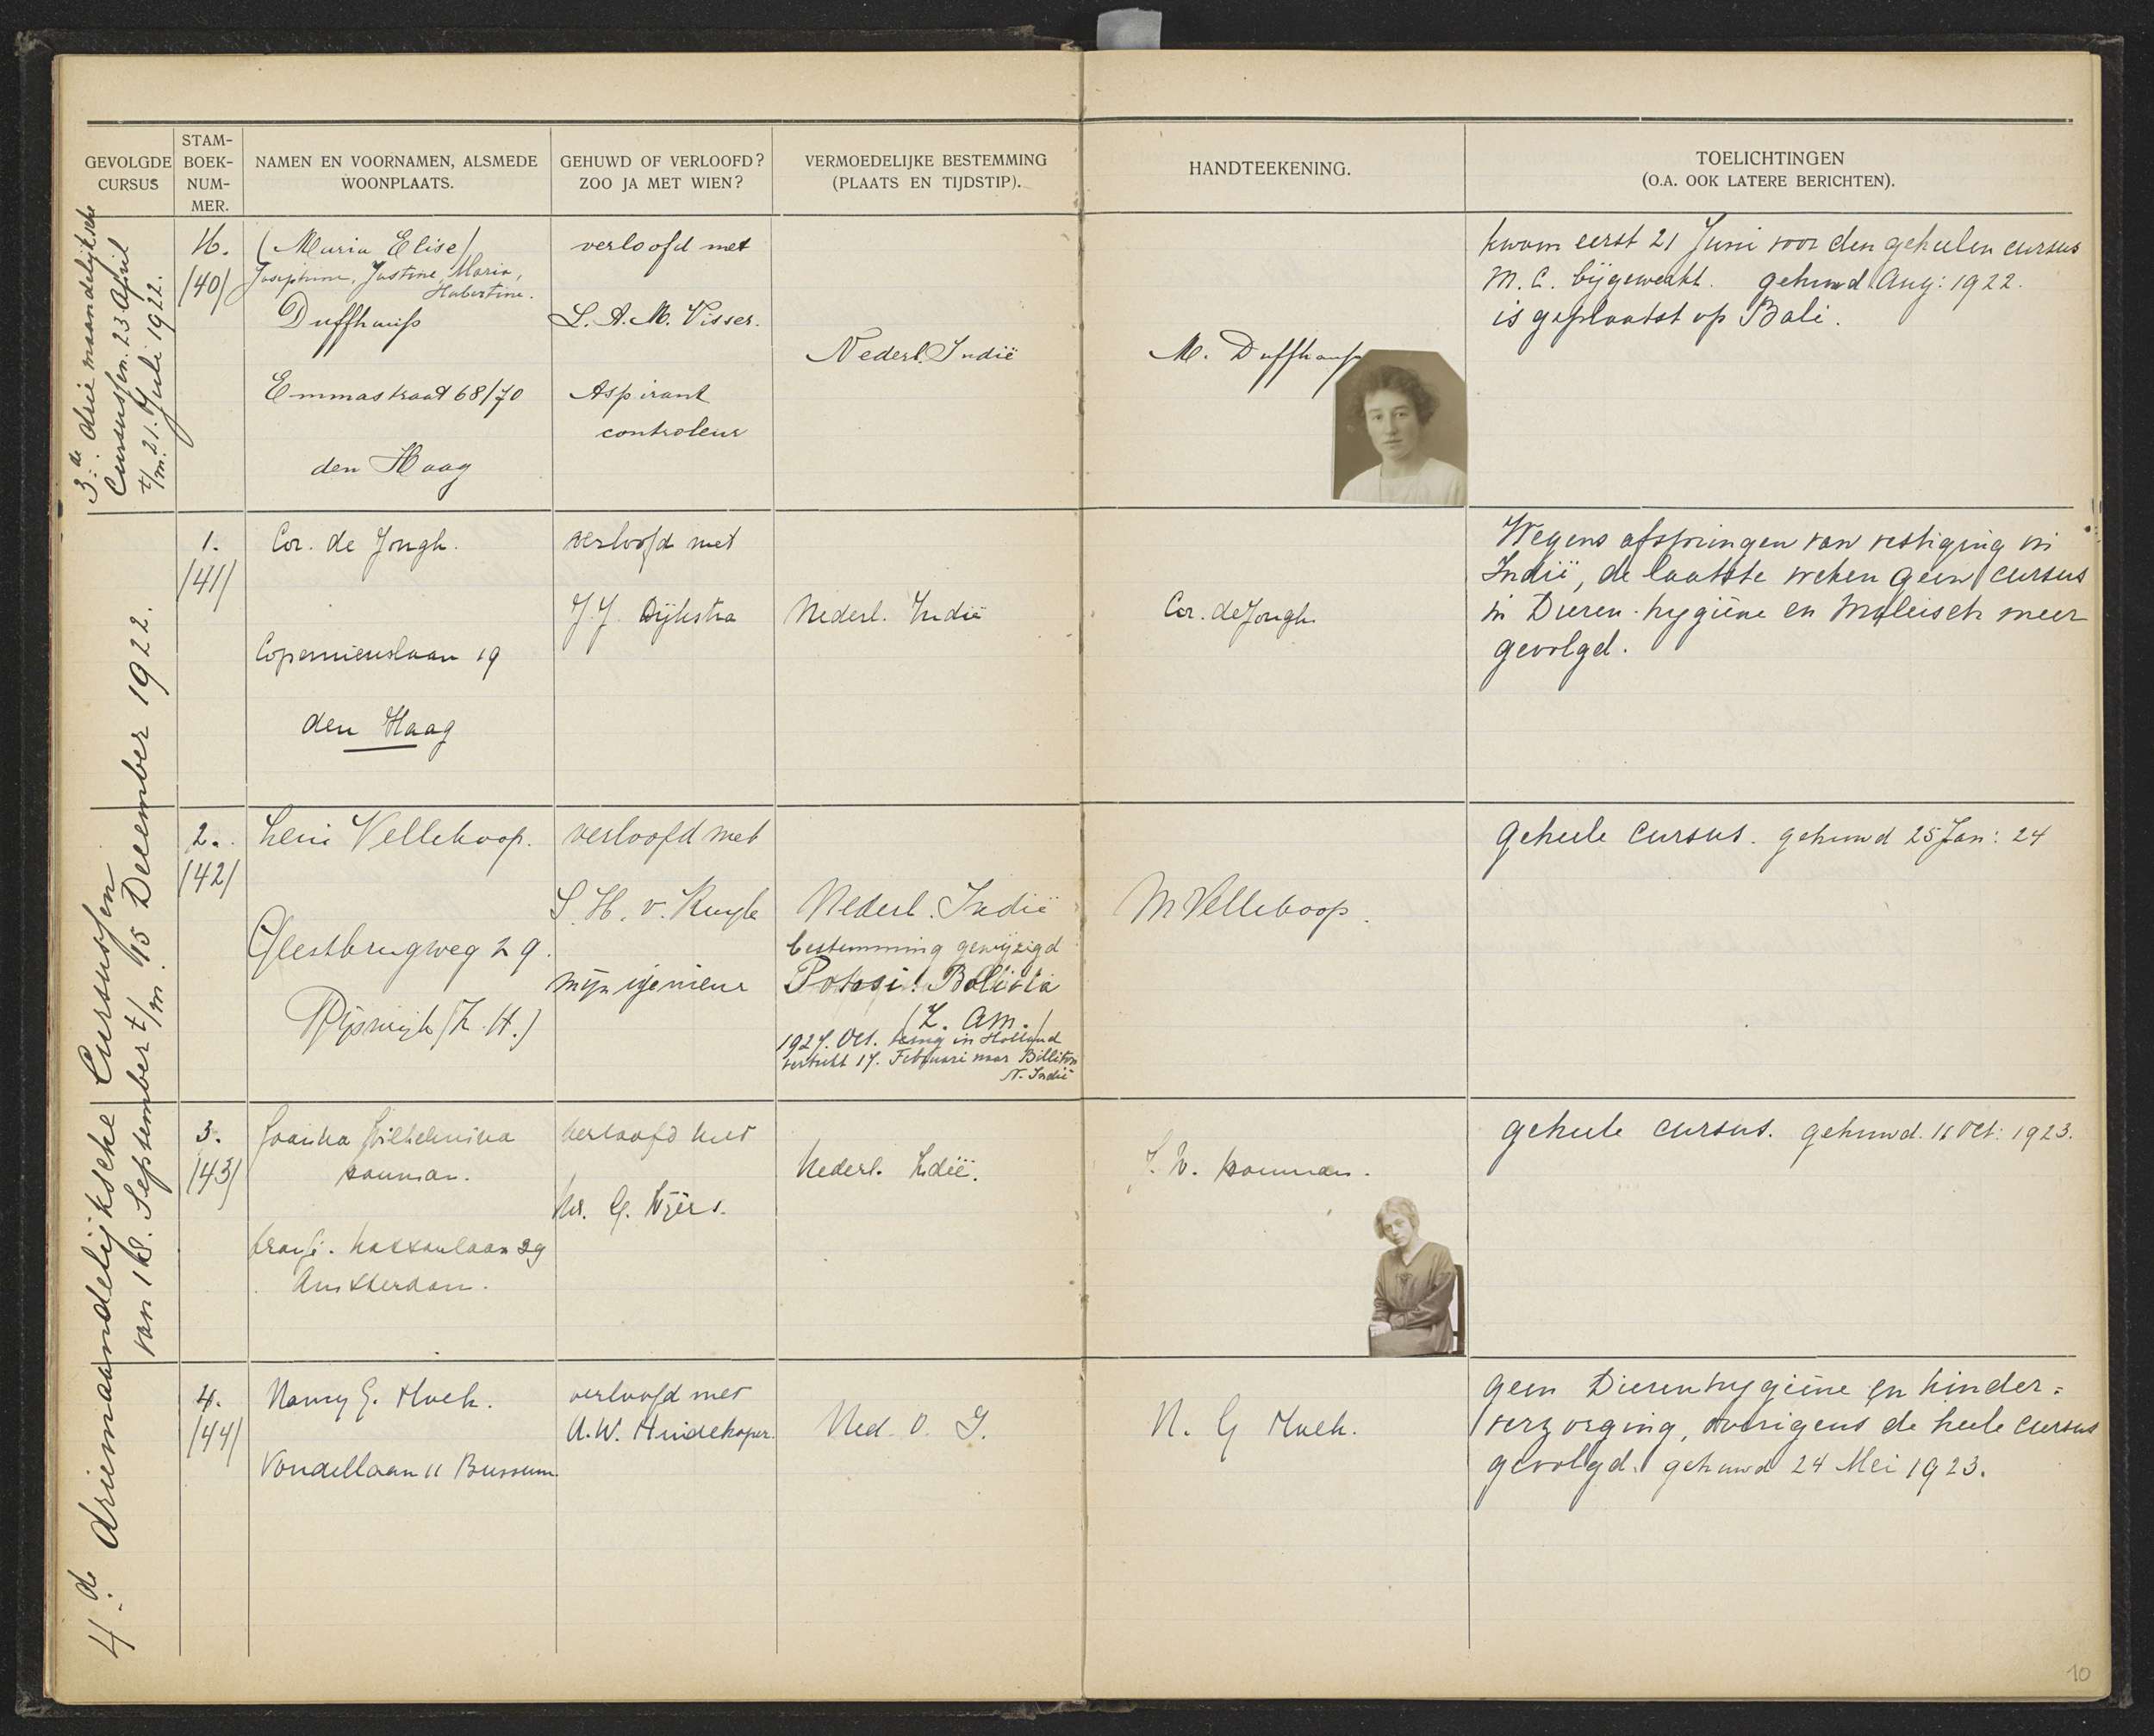 GEVOLGDE
CURSUS
STAM-
BOEK-
NUM-
MER.
NAMEN EN VOORNAMEN, ALSMEDE
WOONPLAATS.
GEHUWD OF VERLOOFD?
ZOO JA MET WIEN?
VERMOEDELIJKE BESTEMMING
(PLAATS EN TIJDSTIP).
HANDTEEKENING.
TOELICHTINGEN
(O.A. OOK LATERE BERICHTEN).
3de driemaandelijksche
Cursussen. 23 April
t/m. 21. Juli 1922.
16.
/40/
(Maria Elise)
Josephine, Justine, Maria,
Hubertine.
Duffhauss
Emmastraat 68/70
den Haag
verloofd met
L. A. M. Visser.
Aspirant
controleur
Nederl. Indië
M. Duffhauss
kwam eerst 21 Juni voor den geheelen cursus
M. C. bijgewerkt. gehuwd Aug: 1922.
is geplaatst op Bali.
4de driemaandelijksche Cursussen
van 18. September t/m. 15 December 1922.
1.
/41/
Cor. de Jongh.
Copernicuslaan 19
den Haag
verloofd met
J. J. Dijkstra
Nederl. Indië
Cor. de Jongh.
Wegens afspringen van vestiging in
Indië, de laatste weken geen cursus
in Dieren-hygiëne en Maleisch meer
gevolgd.
2.
/42/
Leni Vellekoop.
Geestbrugweg 29.
Rijswijk (Z.H.)
verloofd met
S. H. v. Kuyk
mijn igenieur
Nederl. Indië
bestemming gewijzigd
Potosi: Bolivia
(Z. Am.)
1927. Oct. terug in Holland
vertrekt 17. Februari naar Billiton
N. Indië
M Vellekoop.
Geheele cursus. gehuwd 25 Jan: 24
3.
/43/
Joanna Wilhelmina
Bouman.
Frans. Nassaulaan 29
Amsterdam.
verloofd met
Mr. G. Wijers.
Nederl. Indië.
J. W. Bouman.
geheele cursus. gehuwd. 11 Oct: 1923.
4.
/44/
Nancy G. Hoek.
Vondellaan 11 Bussum
verloofd met
A. W. Huidekoper.
Ned. O. I.
N. G Hoek.
geen Dierenhygiëne en kinder=
verzorging, overigens de heele cursus
gevolgd. gehuwd 24 Mei 1923.
10